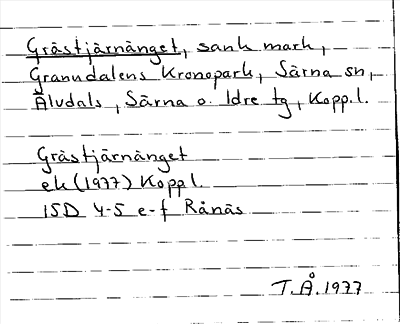 Gråstjärnänget, sank mark,
Granndalens Kronopark, Särna sn,
Älvdals, Särna o. Idre tg, Kopp.l.
Gråstjärnänget
ek (1977) Kopp l.
15D 4-5 e-f Rånäs
T.Å. 1977